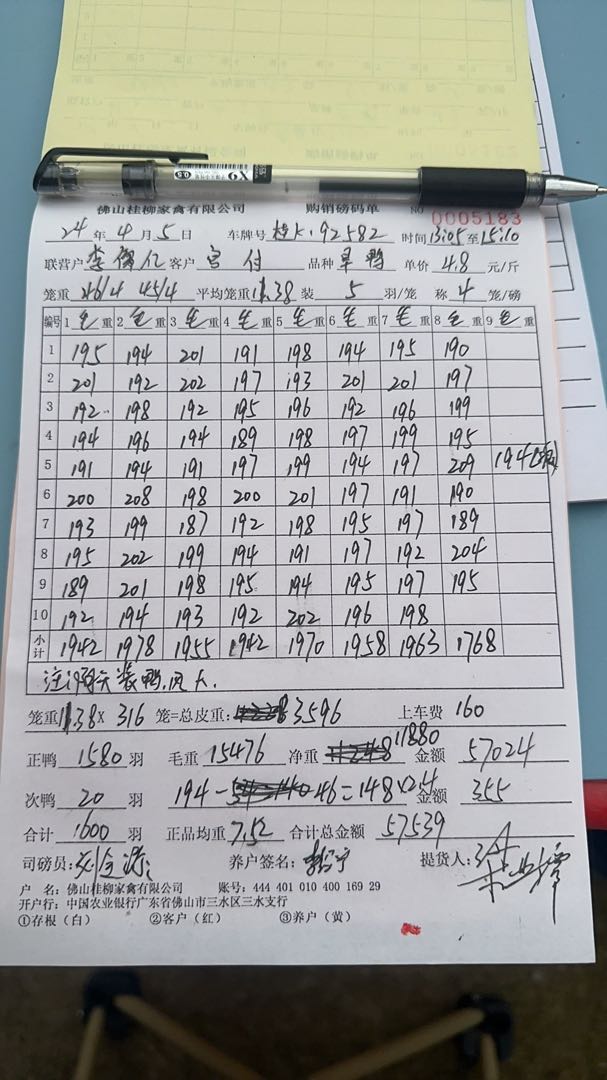 X9 0.5
佛山桂柳家禽有限公司 购销磅码单 NO 0005183
24 年 4 月 5 日 车牌号 桂K.92582 时间 13:05 至 15:10
联营户 李 亿 客户 宫付 品种 旱鸭 单价 4.8 元/斤
笼重 46/4 45/4 平均笼重 11.38 装 5 羽/笼 称 4 笼/磅
编号 1 毛 重 2 毛 重 3 毛 重 4 毛 重 5 毛 重 6 毛 重 7 毛 重 8 毛 重 9 毛 重
1 195 194 201 191 198 194 195 190
2 201 192 202 197 193 201 201 197
3 192 198 192 195 196 192 196 199
4 194 196 194 189 198 197 199 195
5 191 194 191 197 199 194 197 209 194
6 200 208 198 200 201 197 191 190
7 193 199 187 192 198 195 197 189
8 195 202 199 194 191 197 192 204
9 189 201 198 195 194 195 197 195
10 192 194 193 192 202 196 198
小计 1942 1978 1955 1942 1970 1958 1963 1768
注:阴天装鸭,风大.
笼重 11.38 X 316 笼=总皮重: 3596 上车费 160
正鸭 1580 羽 毛重 15476 净重 11880 金额 57024
次鸭 20 羽 194 - 46 = 148 × 2.4 金额 355
合计 1600 羽 正品均重 7.52 合计总金额 57539
司磅员: 养户签名: 提货人:
户 名: 佛山桂柳家禽有限公司 账号: 444 401 010 400 169 29
开户行: 中国农业银行广东省佛山市三水区三水支行
①存根(白) ②客户(红) ③养户(黄)